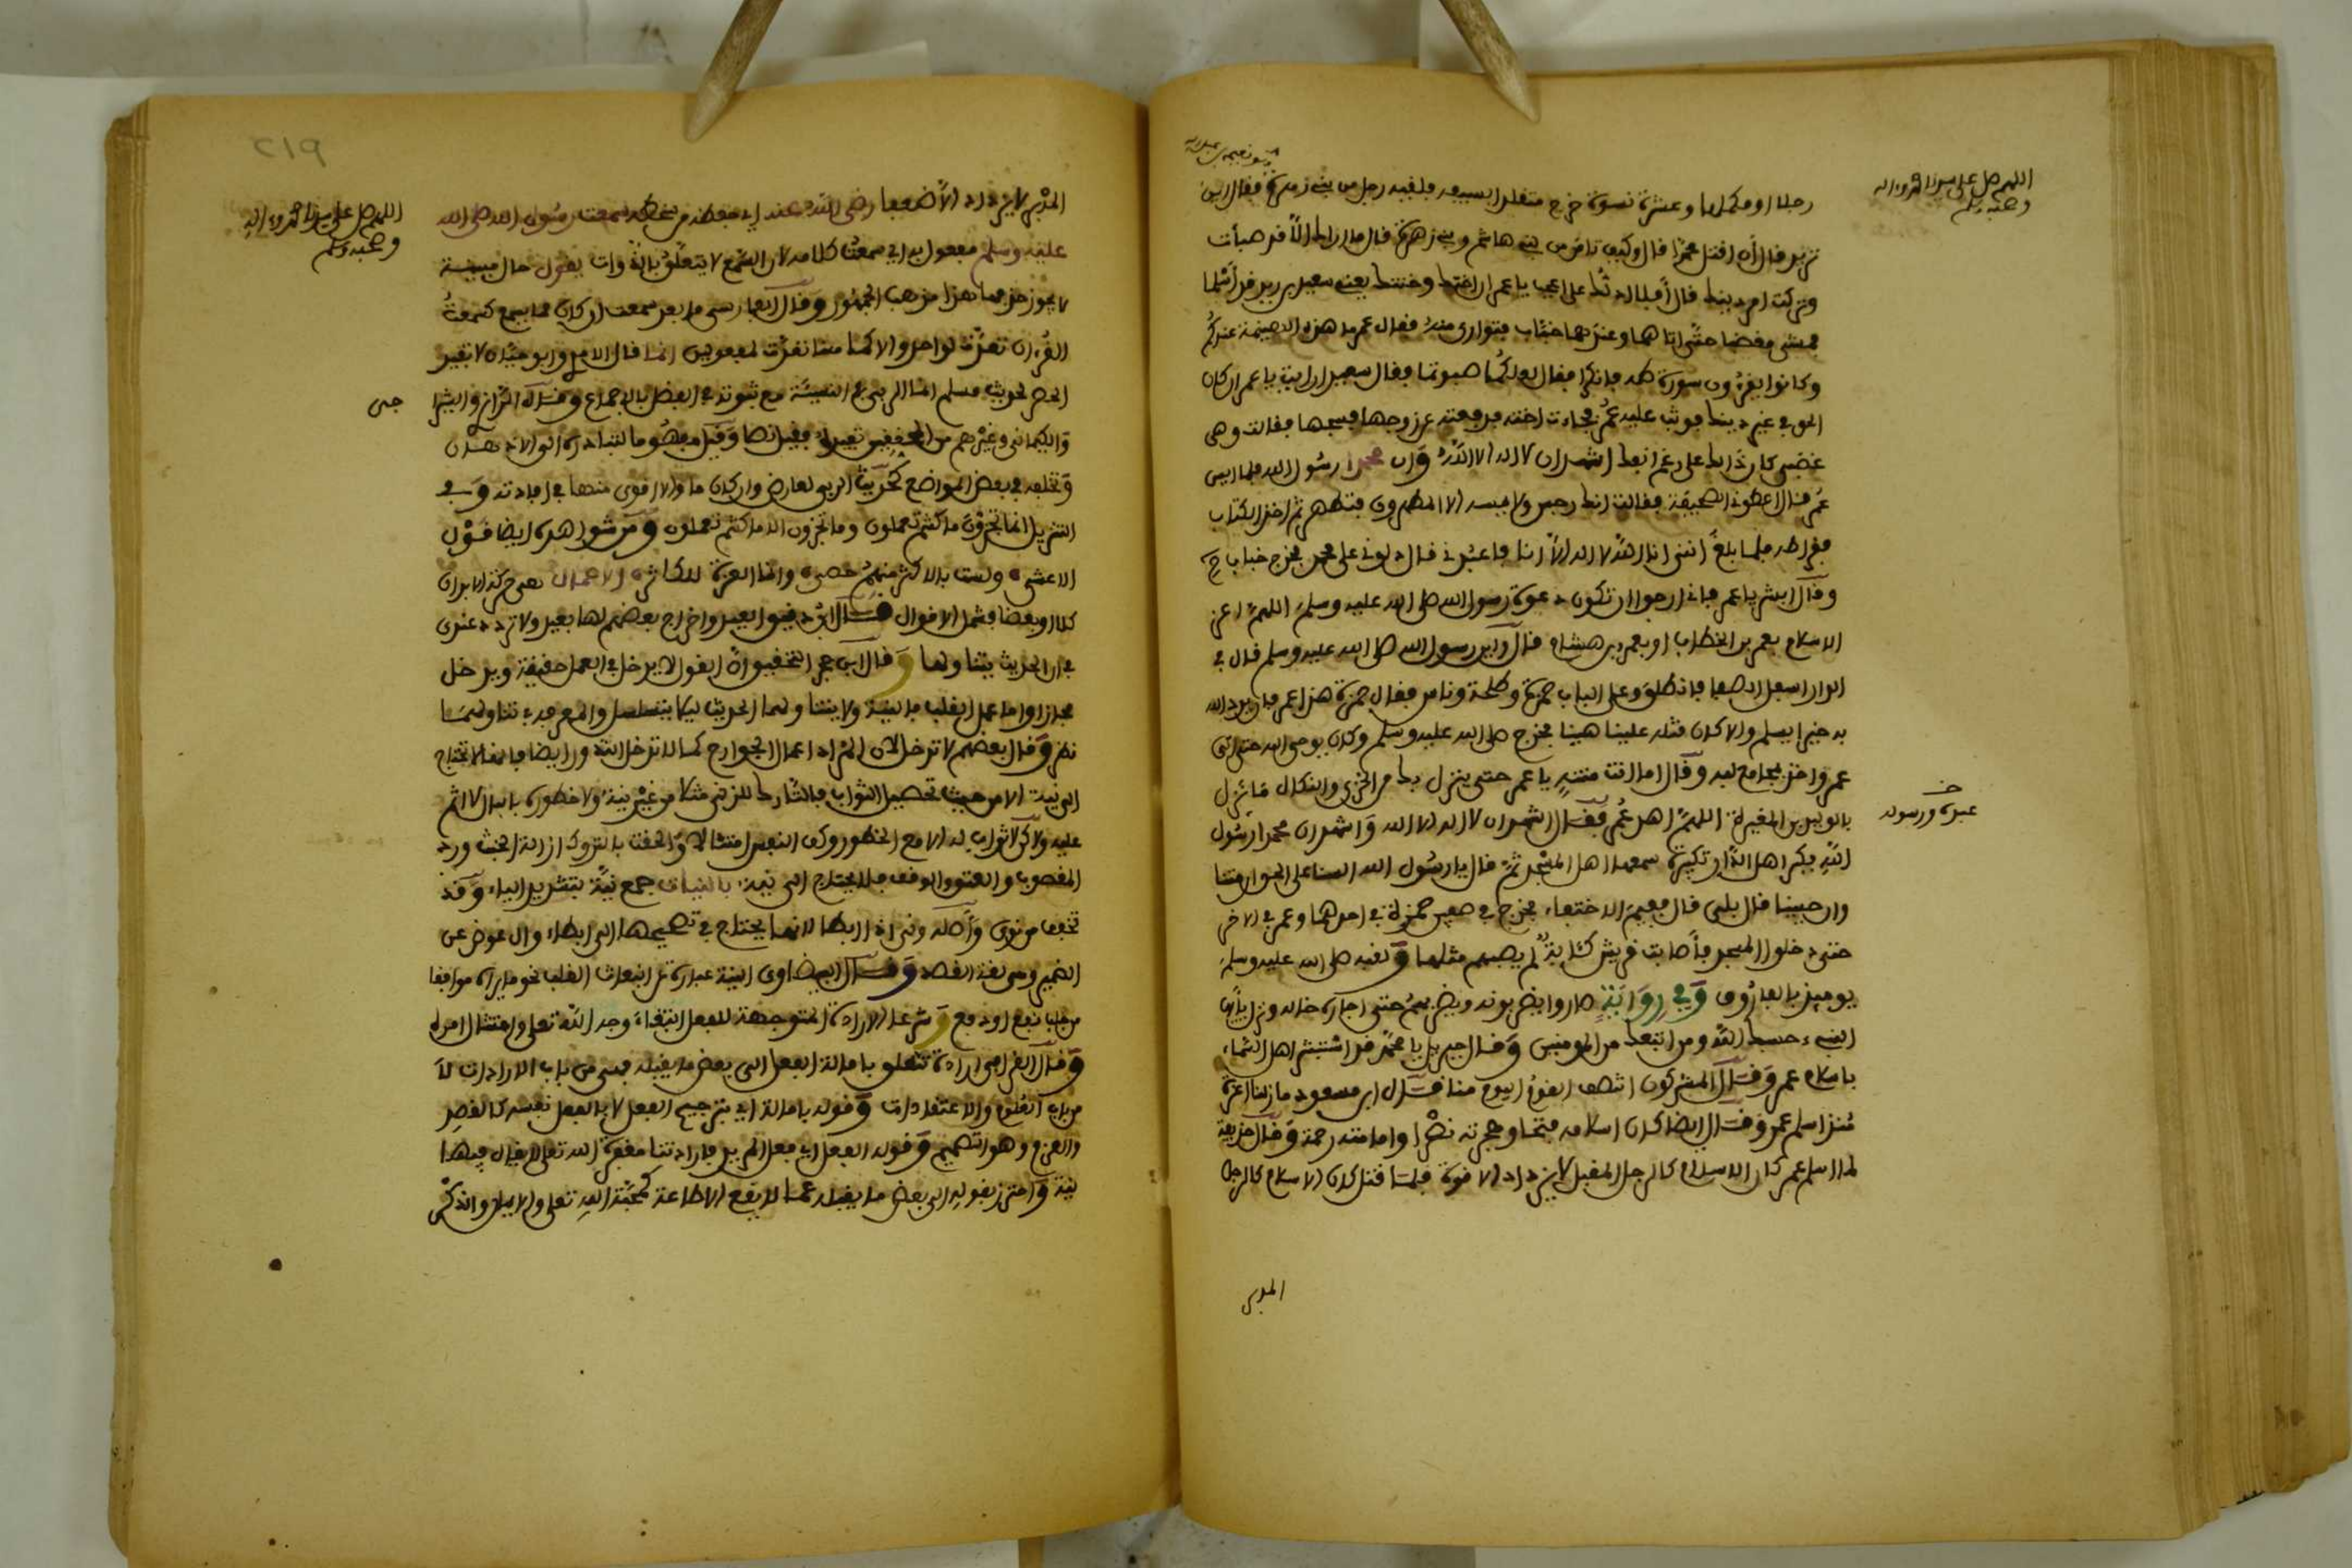 اللهم صل على سيدنا محمد وءاله
وصحبه وسلم
رجلا او مكملها وعشرة نسوة خرج متقلدا بسيفه فلقيه رجل من بني زهرة فقال اين
تريد قال أن اقتل محمدا قال وكيف تامن من بني هاشم وبني زهرة قال ما اراك الا قد صبأت
وتركت دينك قال أفلا ادلك على العجب يا عمر ان اختك وختنك يعني سعيد بن زيد قد أسلما
فمشى مغضبا حتى اتاهما وعندهما خباب فتوارى منه فقال عمر ما هذه الهينمة عندكم
وكانوا يقرءون سورة طه فانكرا فقال لعلكما صبوتما فقال سعيد ارايت يا عمر ان كان
الحق في غير دينك فوثب عليه عمر فجاءت اخته فدفعته عن زوجها فسجها فقالت وهي
غضبى كان ذالك على رغم انفك اشهد ان لا اله الا الله وأن محمدا رسول الله فلما ايس
عمر قال اعطوني الصحيفة فقالت انك رجس ولا يمسه الا المطهرون فتطهر ثم اخذ الكتاب
فقرا طه فلما بلغ انني انا الله لا اله الا انا فاعبدني قال دلوني على محمد فخرج خباب
وقال ابشر يا عمر فاني ارجوا ان تكون دعوة رسول الله صلى الله عليه وسلم اللهم اعز
الاسلام بعمر بن الخطاب او بعمرو بن هشام قال وكان رسول الله صلى الله عليه وسلم قال في
الدار اسفل الصفا فانطلق وعلى الباب حمزة وطلحة وناس فقال حمزة هذا عمر فان يرد الله
به خيرا يسلم والا كان قتله علينا هينا فخرج صلى الله عليه وسلم وكان يوحى اليه حتى اتى
عمر واخذ بمجامع ثوبه وقال اما انت منته يا عمر حتى ينزل بك من الخزي والنكال ما نزل
بالوليد بن المغيرة اللهم اهد عمر فقال اشهد ان لا اله الا الله وأشهد ان محمدا رسول
عبده ورسوله
الله فكبر اهل الدار تكبيرة سمعها اهل المسجد ثم قال يا رسول الله السنا على الحق ان متنا
وان حيينا قال بلى قال ففيم الاختفاء فخرج في صفين حمزة في احدهما وعمر في الاخر
حتى دخلوا المسجد فأصابت قريش كئابة لم يصبهم مثلها ولقبه صلى الله عليه وسلم
يومئذ بالفاروق وفي رواية صاروا يضربونه ويضربهم حتى اجاره خاله ونزل يأيها
النبيء حسبك الله ومن اتبعك من المومنين وقال جبريل يا محمد قد استبشر اهل السماء
باسلام عمر وقال المشركون انتصف القوم اليوم منا قال ابن مسعود ما زلنا اعزة
منذ اسلم عمر وقال ايضا كان اسلامه فتحا وهجرته نصرا وامامته رحمة وقال حذيفة
لما اسلم عمر كان الاسلام كالرجل المقبل لا يزداد الا قوة فلما قتل كان الاسلام كالرجل
المدبر
219
اللهم صل على سيدنا محمد وءاله
وصحبه وسلم
المدبر لا يزداد الا ضعفا رضي الله عنه اي فقط من سخطه سمعت رسول الله صلى الله
عليه وسلم مفعول به اي سمعت كلامه لان السمع لا يتعلق بالذوات يقول حال مبينة
لا يجوز حذفها هذا مذهب الجمهور وقال الفارسي ما بعد سمعت ان كان مما يسمع كسمعت
القرءان تعدت لواحد والا كما هنا تعدت لمفعولين انما قال الامدي وابو حيان لا تفيد
الحصر لحديث مسلم انما الربى في النسيئة مع ثبوته في الفضل بالاجماع وقال الرازي والشيرا
جى
والكيا وغيرهم من المحققين تفيده فقيل نصا وقيل مفهوما لتبادره الى الاذهان
وتخلفه في بعض المواضع كحديث الربى لعارض وان كان ما والا اقوى منها في افادته وفي
التنزيل انما تجزون ما كنتم تعملون وما تجزون الا ما كنتم تعملون ومن شواهده ايضا قول
الاعشى ولست بالاكثر منهم حصى وانما العزة للكاثر الاعمال هي حركة الابدان
كلا او بعضا فتشمل الاقوال قال ابن دقيق العيد واخراج بعضهم لها بعيد ولا تردد عندي
في ان الحديث يتناولها وقال ابن حجر التحقيق ان القول لا يدخل في العمل حقيقة ويدخل
مجازا واما عمل القلب فالنية ولا يتناولها الحديث ليلا يتسلسل والمعرفة في تناولهما
نظر وقال بعضهم لا تدخل لان المراد اعمال الجوارح كما لا تدخل التروك ايضا فانها لا تحتاج
الى نية الا من حيث تحصيل الثواب فالتارك للزنى مثلا من غير نية ولا خطوره بالبال لا اثم
عليه ولاكن لا ثواب له الا مع الخطور وكف النفس امتثالا والحقت بالتروك ازالة الخبث ورد
المغصوب والعتق والوقف فلا يحتاج الى نية بالنيات جمع نية بتشديد الياء وقد
تخفف من نوى وأصله ونراه ابطا لانها يحتاج في تصحيحها الى ابطاء وال عوض عن
الضمير وهي لغة القصد وقال البيضاوي النية عبارة عن انبعاث القلب نحو ما يراه موافقا
من جلب نفع او دفع وشرعا الارادة المتوجهة للفعل ابتغاء وجه الله تعلى وامتثال امره
وقال القرافي ارادة تتعلق بامالة الفعل الى بعض ما يقبله فهي من باب الارادات لا
من باب العلوم والاعتقادات وقوله بامالة اي بترجيح الفعل لا بالفعل نفسه كالقصد
والعزم وهو التصميم وقوله الفعل اي فعل المريد فارادتنا مغفرة الله تعلى لا يقال فيها
نية واحترز بقوله الى بعض ما يقبله عما لا يقع الا طاعة كمحبة الله تعلى والايمان والذكر